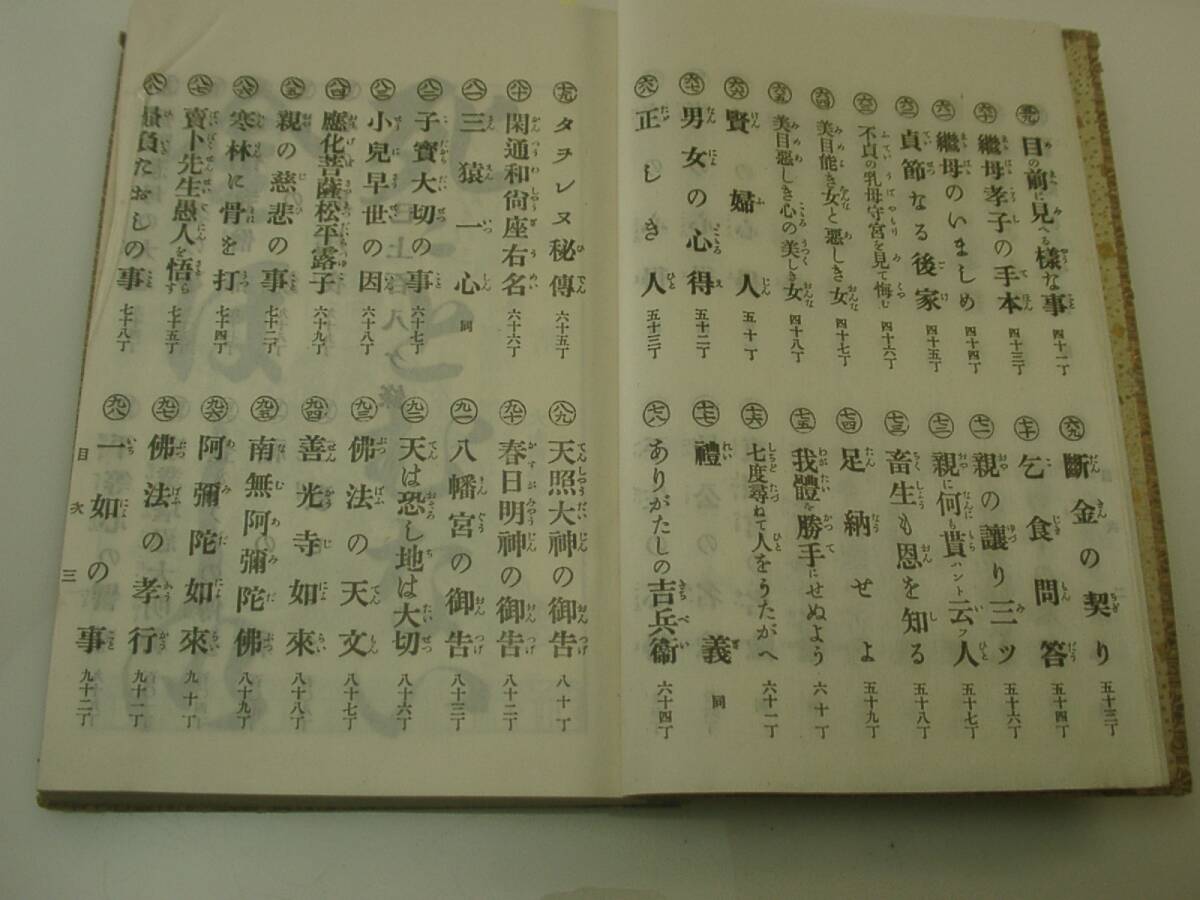 五九 目の前に見へる様な事 四十一丁
六十 繼母孝子の手本 四十三丁
六一 繼母のいましめ 四十四丁
六二 貞節なる後家 四十五丁
六三 不貞の乳母守宮を見て悔む 四十六丁
六四 美目能き女と悪しき女 四十七丁
六五 美目悪しき心の美しき女 四十八丁
六六 賢の婦人 五十丁
六七 男女の心得 五十二丁
六八 正しき人 五十三丁
六九 斷金の契り 五十三丁
七十 乞食問答 五十四丁
七一 親の讓り三ッ 五十六丁
七二 親に何も貰ハント云フ人 五十七丁
七三 畜生も恩を知る 五十八丁
七四 足納せよ 五十九丁
七五 我體を勝手にせぬよう 六十丁
七六 七度尋ねて人をうたがへ 六十一丁
七七 禮義 同
七八 ありがたしの吉兵衞 六十四丁
七九 タヲレヌ秘傳 六十五丁
八十 閑通和尚座右名 六十六丁
八一 三猿一心 同
八二 子寶大切の事 六十七丁
八三 小兒早世の因 六十八丁
八四 應化菩薩松平露子 六十九丁
八五 親の慈悲の事 七十二丁
八六 寒林に骨を打 七十四丁
八七 賣卜先生愚人を悟す 七十五丁
八八 負たおしの事 七十八丁
八九 天照大神の御告 八十丁
九十 春日明神の御告 八十二丁
九一 八幡宮の御告 八十三丁
九二 天は恐し地は大切 八十六丁
九三 佛法の天文 八十七丁
九四 善光寺如來 八十八丁
九五 南無阿彌陀佛 八十九丁
九六 阿彌陀如來 九十丁
九七 佛法の孝行 九十一丁
九八 一如の事 九十二丁
目次 三